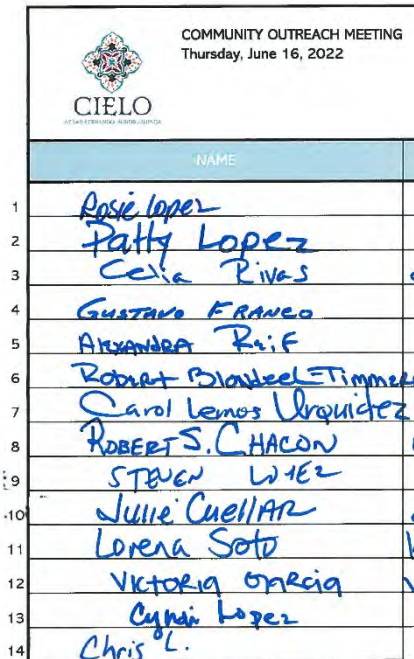 COMMUNITY OUTREACH MEETING
Thursday, June 16, 2022
CIELO
NAME
1 Rosie Lopez
2 Patty Lopez
3 Celia Rivas
4 GUSTAVO FRANCO
5 ALEXANDRA
6 Robert Blondeel-Timmer
7 Carol Lemos Urquidez
8 ROBERT S. CHACON
9 STEVEN
10 Julie Cuellar
11 Lorena Soto
12 VICTORIA GARCIA
13 Cyndi Lopez
14 Chris L.